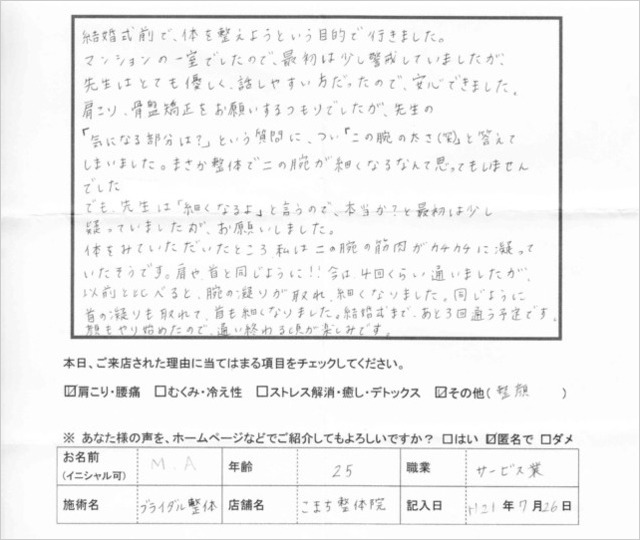 結婚式前で、体を整えようという目的で行きました。
マンションの一室でしたので、最初は少し警戒していましたが、
先生はとても優しく、話しやすい方だったので、安心できました。
肩こり、骨盤矯正をお願いするつもりでしたが、先生の
「気になる部分は?」という質問に、つい「二の腕の太さ(笑)」と答えて
しまいました。まさか整体で二の腕が細くなるなんて思ってもしません
でした
でも、先生は「細くなるよ」と言うので、本当か?と最初は少し
疑っていましたが、お願いしました。
体をみていただいたところ私は二の腕の筋肉がカチカチに凝って
いたそうです。肩や首と同じように!!今は4回くらい通いましたが、
以前と比べると、腕の凝りが取れ、細くなりました。同じように
首の凝りも取れて、首も細くなりました。結婚式まで、あと3回通う予定です。
顔もやり始めたので、通い終わる頃が楽しみです。
本日、ご来店された理由に当てはまる項目をチェックしてください。
☑肩こり・腰痛 □むくみ・冷え性 □ストレス解消・癒し・デトックス ☑その他( 整顔 )
※ あなた様の声を、ホームページなどでご紹介してもよろしいですか? □はい ☑匿名で □ダメ
お名前(イニシャル可) M.A 年齢 25 職業 サービス業
施術名 ブライダル整体 店舗名 こまち整体院 記入日 H21年7月26日